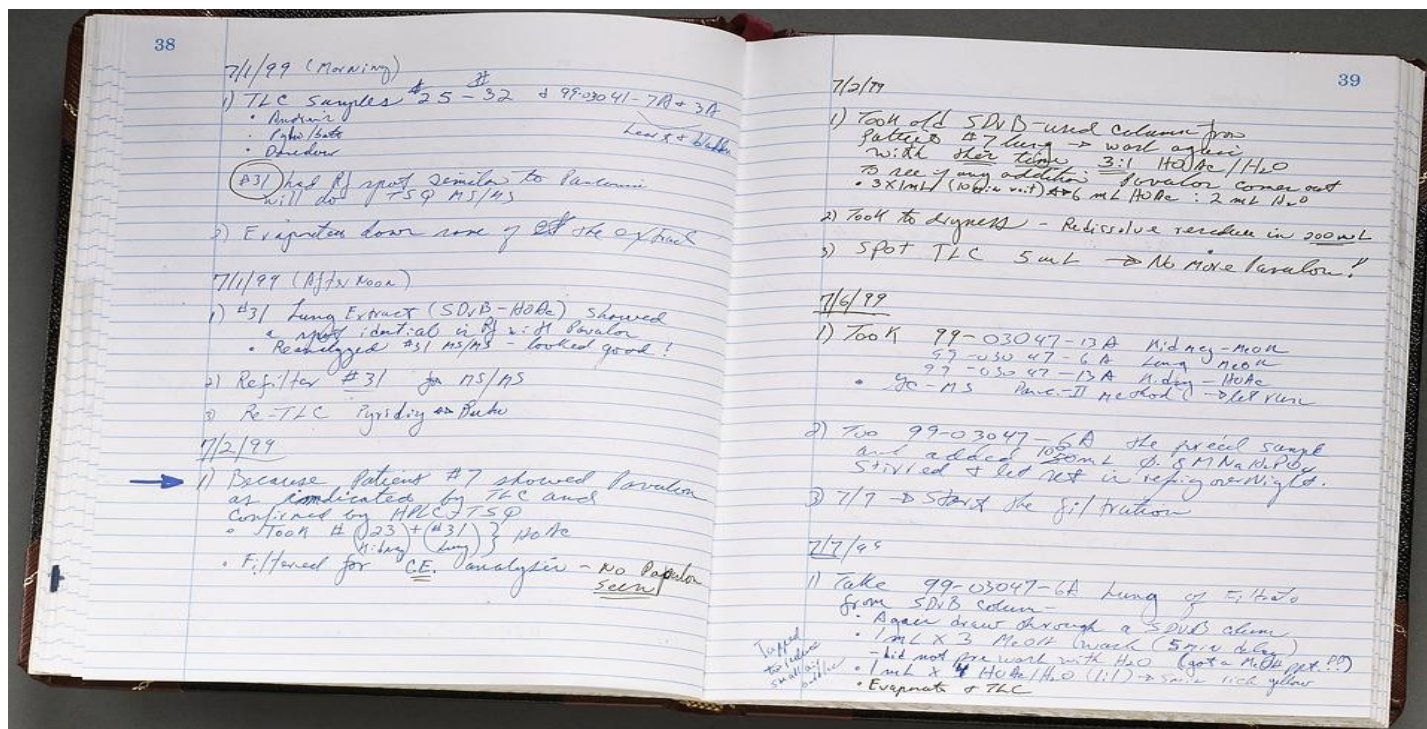 38
7/1/99 (Morning)
1) TLC Samples #25 - #32 & 99-03041-7A & 3A
Heart &
#31 had Rf spot similar to
will do TSQ MS/MS
2) down some of the extract
7/1/99 (AfterNoon)
1) #31 Lung Extract (SDvB-HOAc) showed
a spot identical in Rf with Pavulon
• Reanalyzed #31 MS/MS - looked good!
2) Refilter #31 for MS/MS
3) Re-TLC
7/2/99
1) Because Patient #7 showed Pavulon
as indicated by TLC and
Confirmed by HPLC-TSQ
• Took # (23) + (#31) } HOAc
Kidney Lung
• Filtered for C.E. analysis - No
Seen
39
7/2/99
1) Took old SDvB-used column from
Patient #7 lung → wash again
with this time 3:1 HOAc/H2O
To see if any addition Pavulon comes out
• 3X1mL (10 min wait) 6 mL HOAc : 2 mL H2O
2) Took to dryness - Redissolve residue in
3) Spot TLC → No More Pavulon!
7/6/99
1) Took 99-03047-13A Kidney-MeOH
99-03047-6A Lung MeOH
99-03047-13A Kidney-HOAc
• GC-MS method → let run
2) 99-03047-6A the sample
and added mL 0.8M
Stirred & let set in refrig overNight.
3) 7/7 → Start the filtration
1) Take 99-03047-6A Lung of Filtrate
from SDvB Column-
• Again draw through a SDvB column
• 1mL X 3 MeOH (wash (5min delay)
- did not pre wash with H2O (got a MeOH ppt.!?)
• 1mL X 4 HOAc/H2O (1:1) → yellow
• Evaporate & TLC
Tapped
to
small air